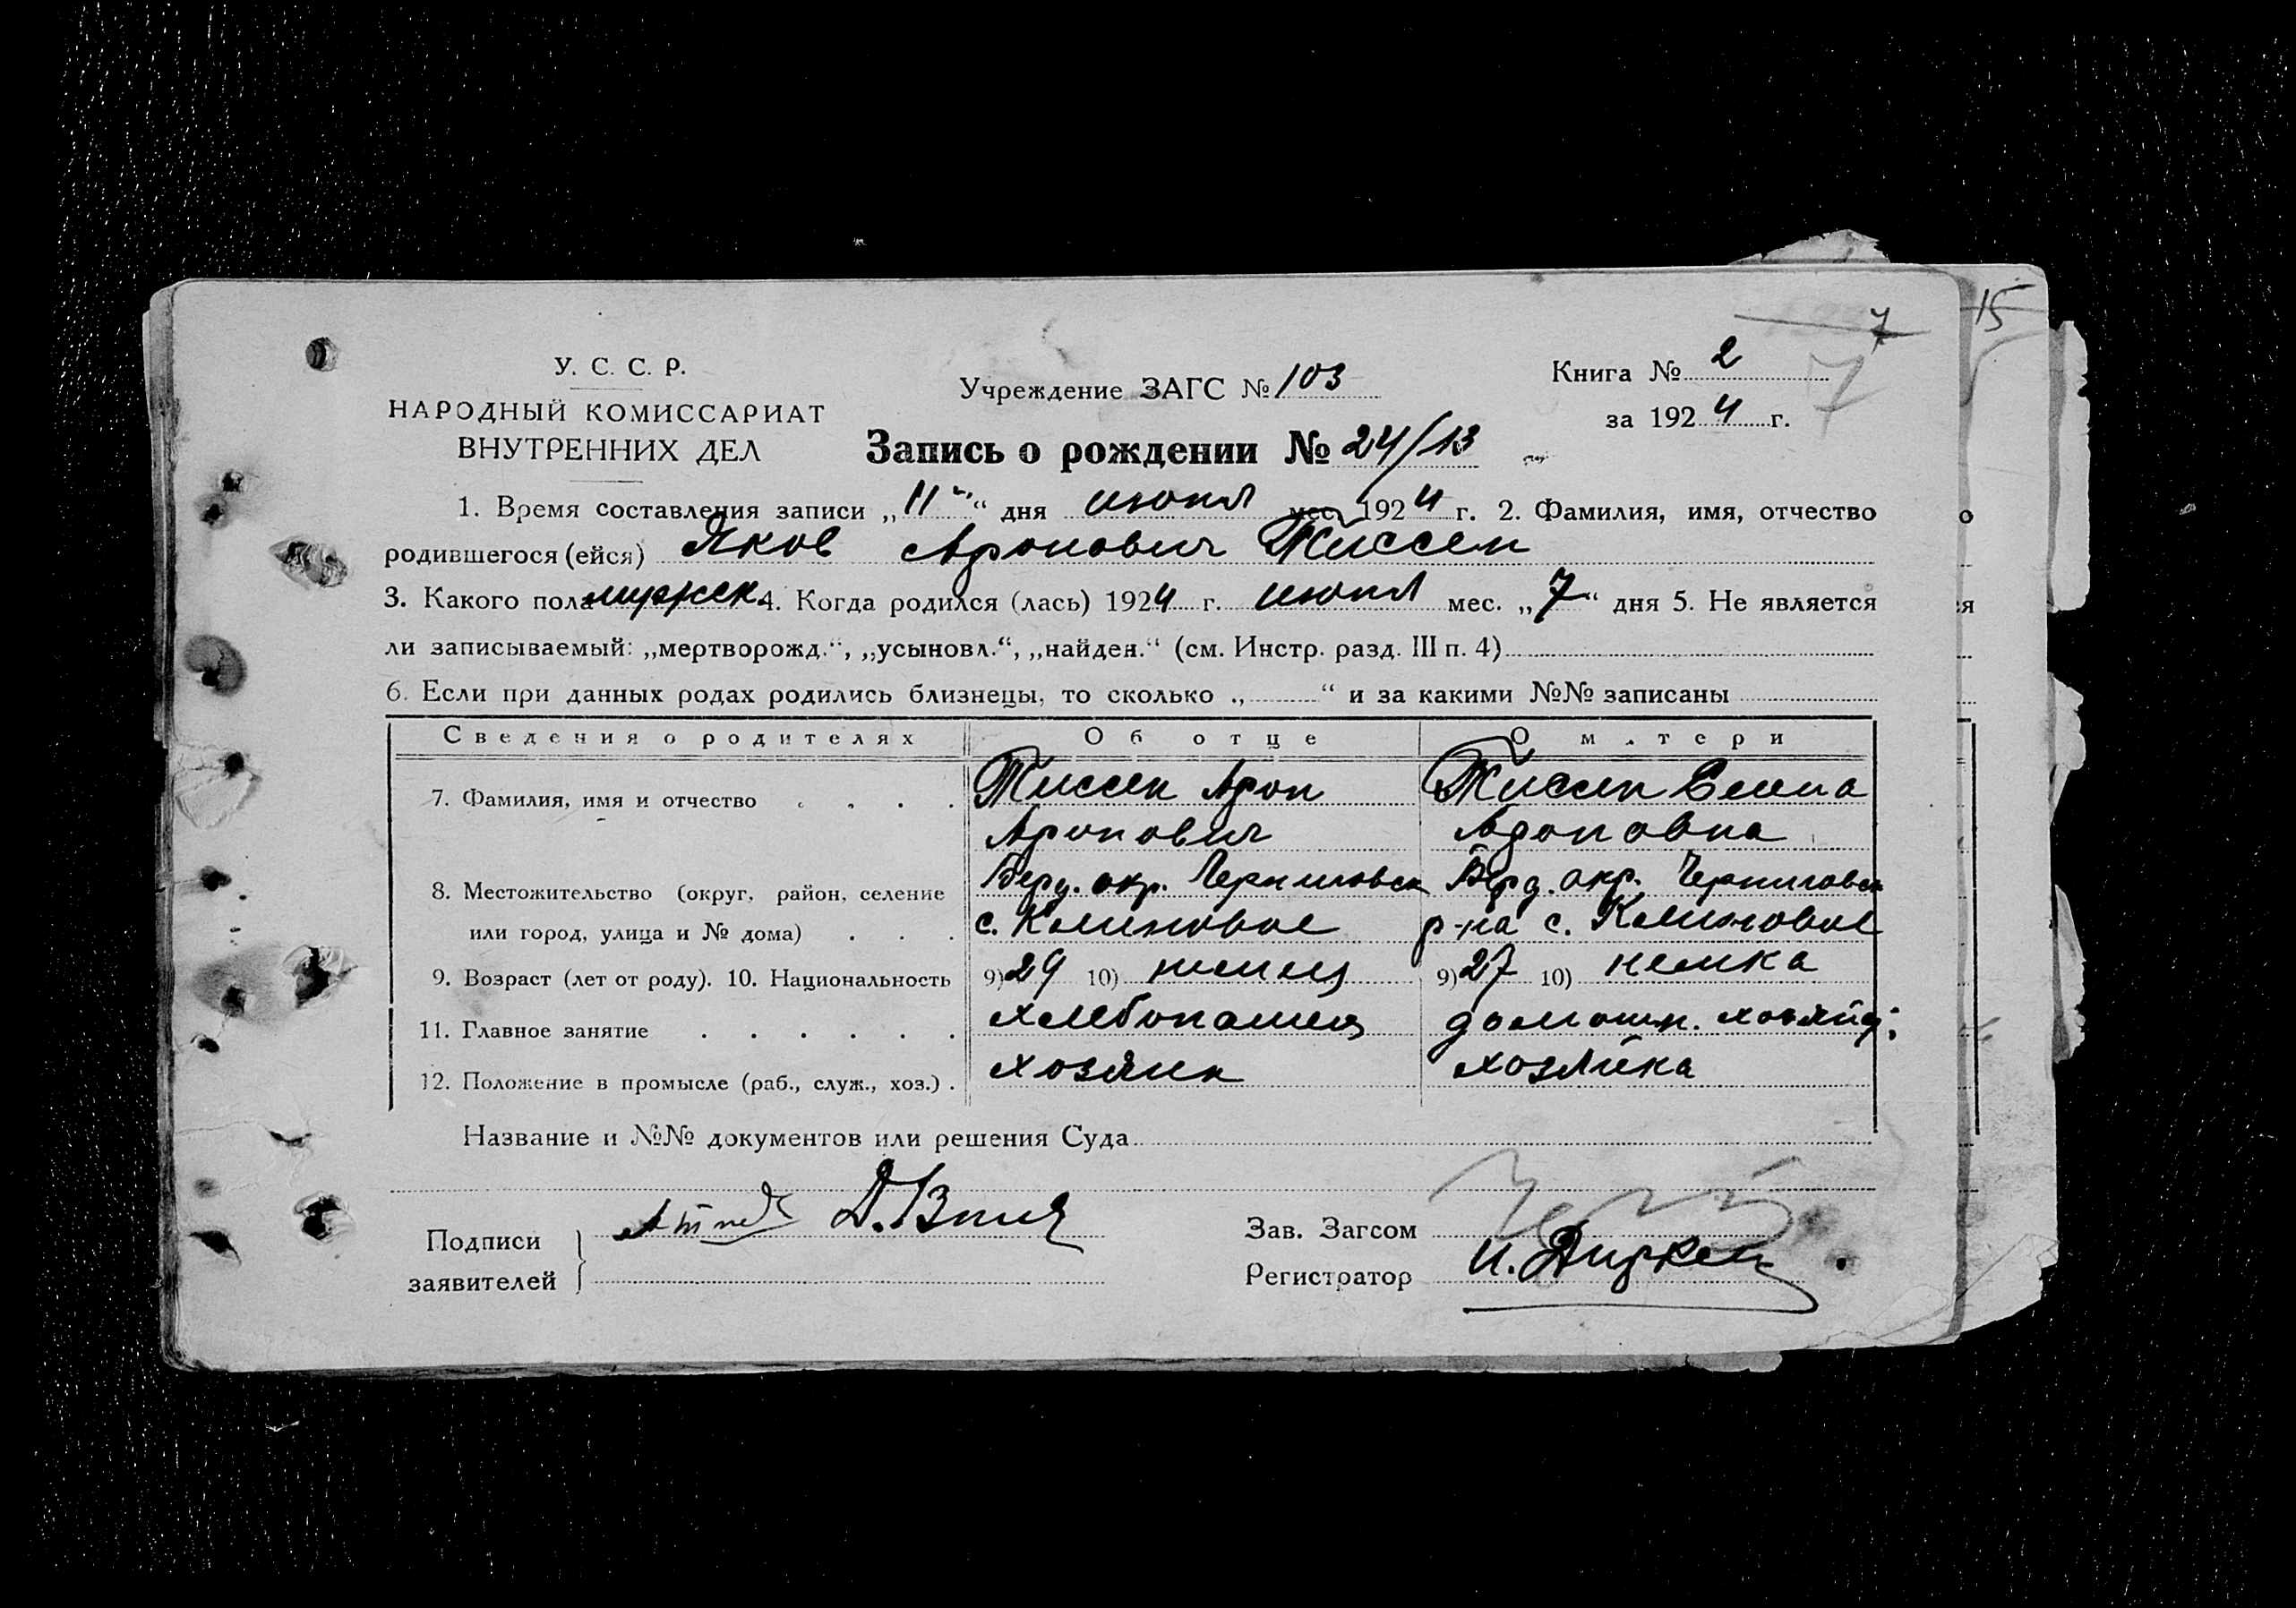 15
7
У. С. С. Р.
НАРОДНЫЙ КОМИССАРИАТ
ВНУТРЕННИХ ДЕЛ
Учреждение ЗАГС № 103
Книга № 2
7
за 1924 г.
Запись о рождении № 24/13
1. Время составления записи „11“ дня июня мес. 1924 г. 2. Фамилия, имя, отчество
родившегося (ейся) Яков Аронович Тиссен
3. Какого пола мужск. 4. Когда родился (лась) 1924 г. июня мес. „7“ дня 5. Не является
ли записываемый: „мертворожд.“, „усыновл.“, „найден.“ (см. Инстр. разд. III п. 4)
6. Если при данных родах родились близнецы, то сколько „ “ и за какими №№ записаны
Сведения о родителях Об отце О матери
7. Фамилия, имя и отчество Тиссен Арон Тиссен Елена
Аронович Ароновна
Берд. окр. Черниговск Берд. окр. Черниговск
8. Местожительство (округ, район, селение
или город, улица и № дома) с. Калиновое р-на с. Калиновое
9. Возраст (лет от роду). 10. Национальность 9) 29 10) немец 9) 27 10) немка
11. Главное занятие хлебопашец домашн. хозяйд:
12. Положение в промысле (раб., служ., хоз.) хозяин хозяйка
Название и №№ документов или решения Суда
Подписи
заявителей
Зав. Загсом
Регистратор И. Диркен
о
я